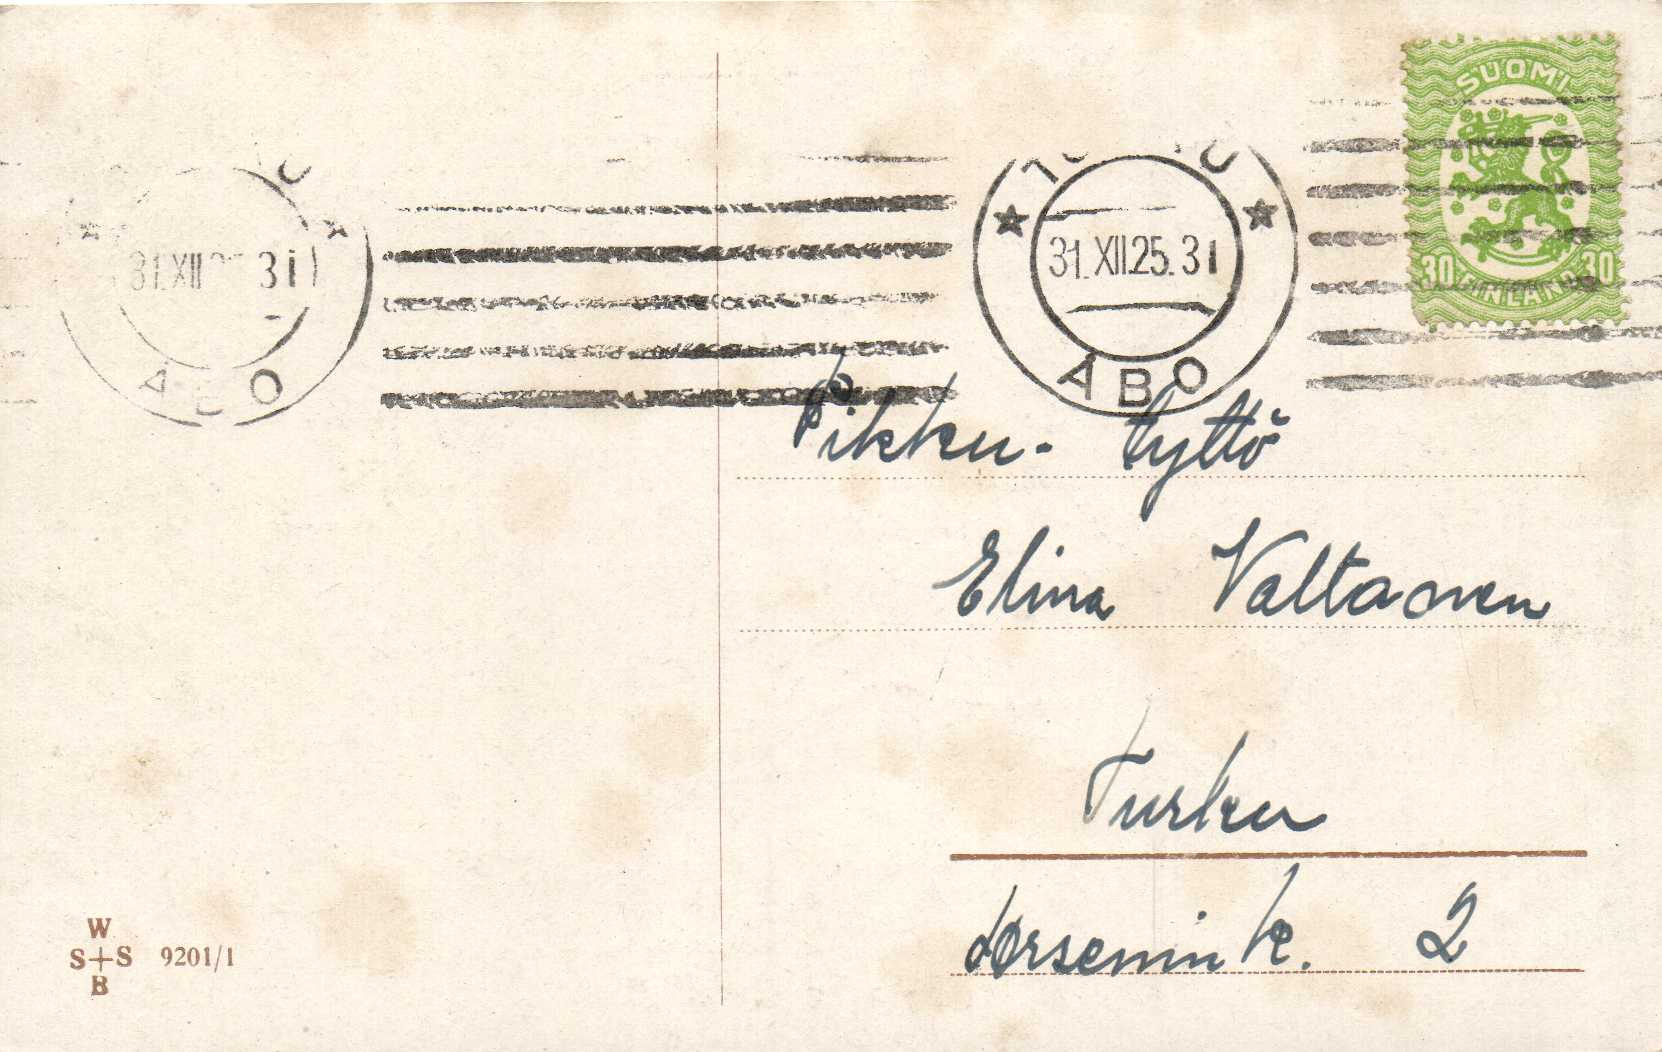 SUOMI
30 FINLAND 30
TURKU
31.XII.25. 31
ÅBO
31.XII 31
ÅBO
Pikku-tyttö
Elina Valtanen
Turku
2
W
S+S 9201/1
B